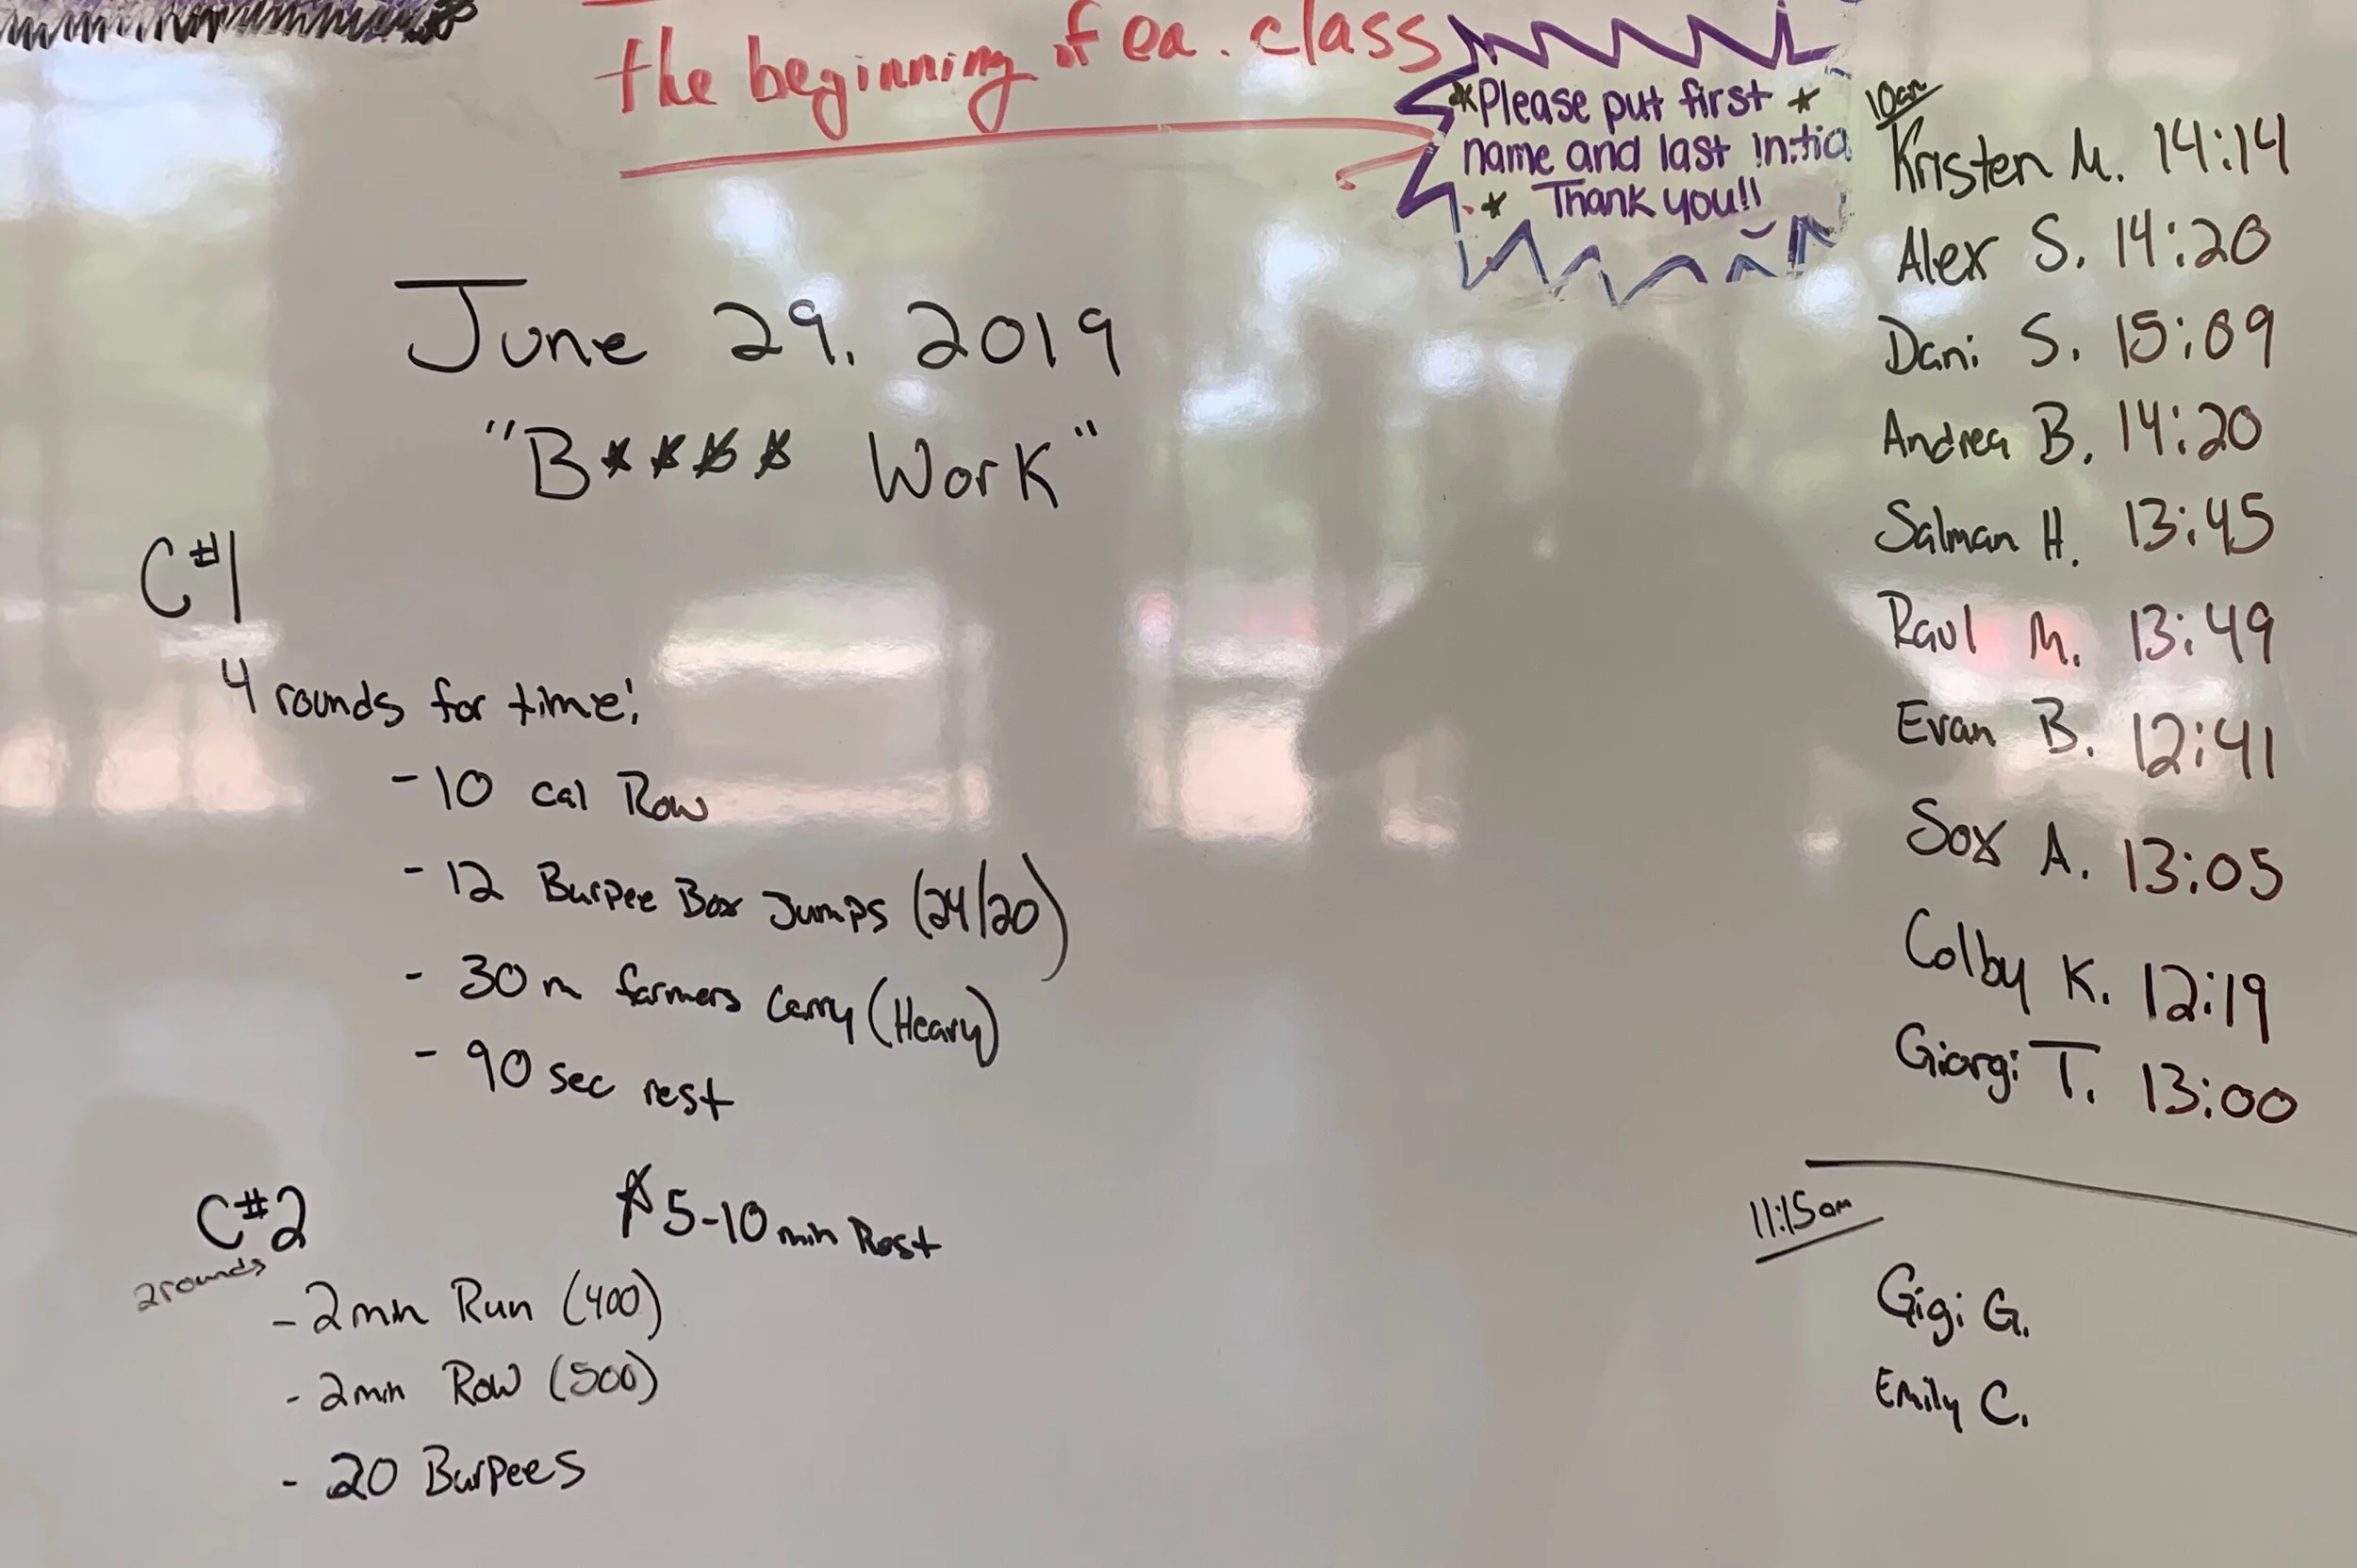 the beginning of ea. class
*Please put first *
name and last initia
* Thank you!!
June 29, 2019
"B**** Work"
C#1
4 rounds for time:
- 10 cal Row
- 12 Burpee Box Jumps (24/20)
- 30 m farmers carry (Heavy)
- 90 sec rest
* 5-10 min Rest
C#2
2 rounds
- 2 min Run (400)
- 2 min Row (500)
- 20 Burpees
10am
Kristen M. 14:14
Alex S. 14:20
Dani S. 15:09
Andrea B. 14:20
Salman H. 13:45
Raul M. 13:49
Evan B. 12:41
Sox A. 13:05
Colby K. 12:19
Giorgi T. 13:00
11:15am
Gigi G.
Emily C.